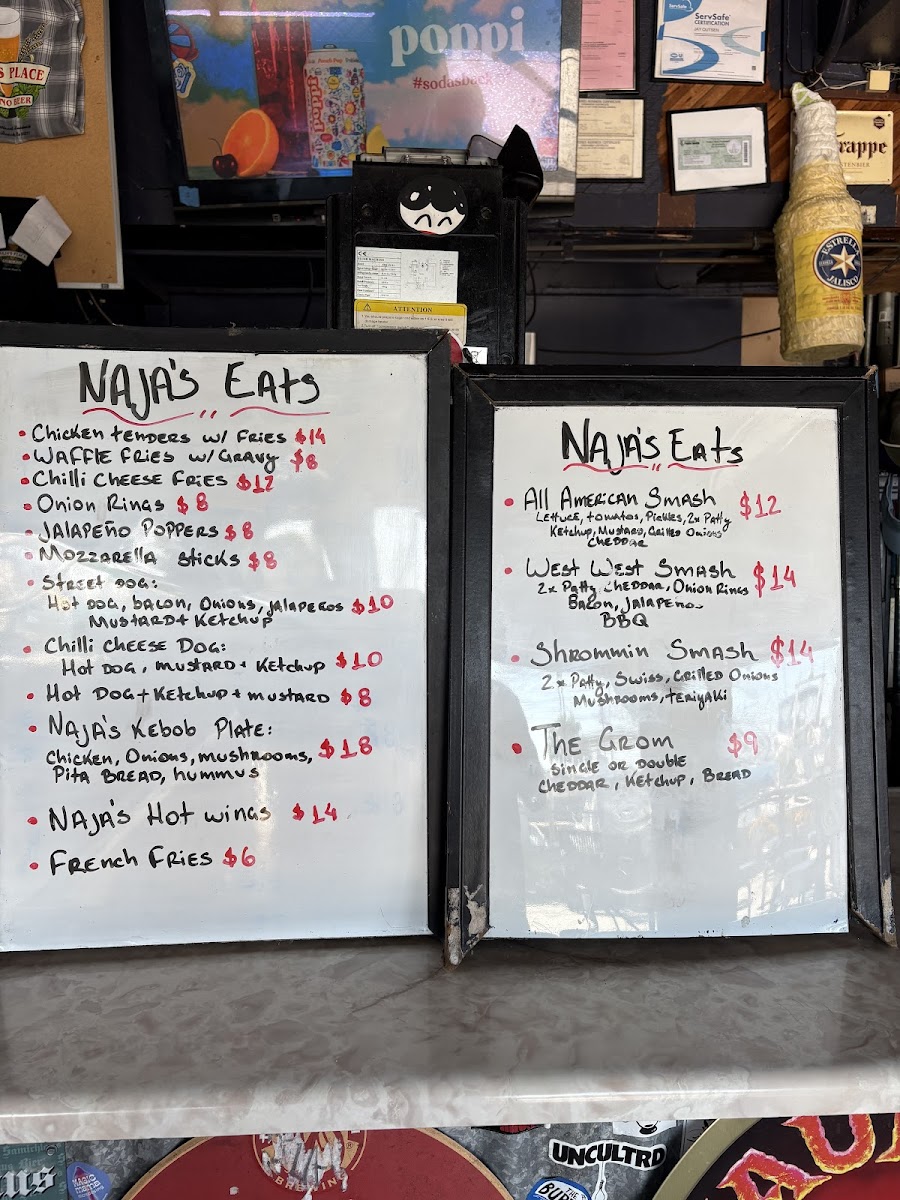 S PLACE
NO BEER
poppi
#sodasback
ServSafe
CERTIFICATION
JAY GUTTEN
Trappe
ESTRELLA
JALISCO
ATTENTION
NAJA'S EATS
• Chicken tenders w/ Fries $14
• WAFFLE FRIES w/GRAVY $8
• Chilli CHEESE FRIES $12
• Onion Rings $8
• JALAPEÑO POPPERS $8
• Mozzarella Sticks $8
• STREET DOG:
Hot DOG, bacon, Onions, jalapeños $10
MUSTARD+ Ketchup
• Chilli CHEESE DOG:
Hot DOG, MUSTARD+ Ketchup $10
• Hot DOG+Ketchup+mustard $8
• NAJA'S KEBOB PLATE: $18
Chicken, Onions, mushrooms,
PITA BREAD, hummus
• NAJA'S Hot wings $14
• FRENCH FRIES $6
NAJA'S EATS
• All AMERICAN SMASH $12
LETTUCE, tomatos, Pickles, 2x Patty
Ketchup, Mustard, Grilled Onions
CHEDDAR
• WEST WEST SMASH $14
2x Patty, CHEDDAR, Onion Rings
Bacon, Jalapeños
BBQ
• SHROMMIN SMASH $14
2x Patty, SWISS, GRILLED Onions
MUSHROOMS, tERIYAKI
• THE GROM $9
SINGLE OR DOUBLE
CHEDDAR, KETCHUP, BREAD
UNCULTRD
THE